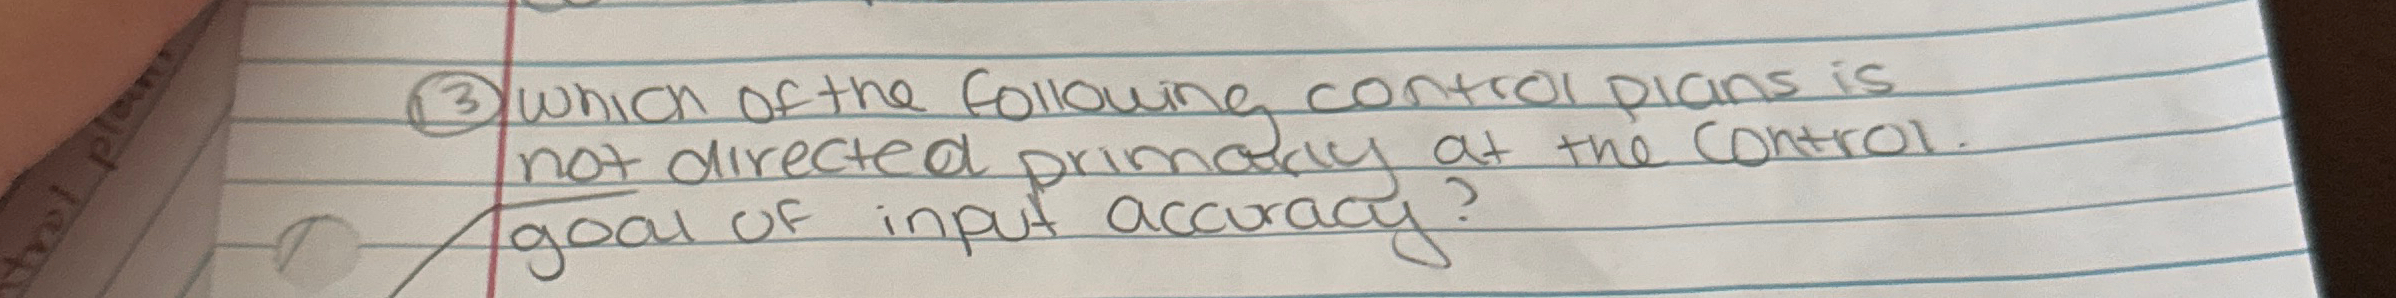 (3) which of the following control plans is
not directed primarily at the control.
goal of input accuracy?